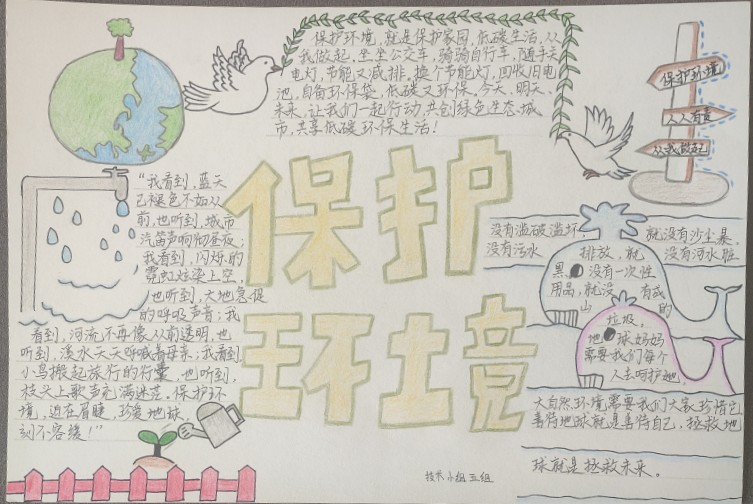 保护环境,就是保护家园,低碳生活,从
我做起,坐坐公交车,骑骑自行车,随手关
电灯,节能又减排,换个节能灯,回收旧电
池,自备环保袋,低碳又环保,今天、明天、
未来,让我们一起行动,共创绿色生态城
市,共享低碳环保生活!
保护环境
人人有责
从我做起
"我看到,蓝天
已褪色不如从
前,也听到,城市
汽笛声响彻昼夜;
我看到,闪烁的
霓虹炫染上空,
也听到,大地急促
的呼吸声音;我
看到,河流不再像从前透明,也
听到,溪水天天呼喊着母亲;我看到,
小鸟搬起旅行的行囊,也听到,
枝头上歌声充满迷茫。保护环
境,迫在眉睫,珍爱地球,
刻不容缓!"
保护
环境
没有滥破滥坏 就没有沙尘暴,
没有污水 排放,就 没有河水脏
黑,没有一次性
用品,就没 有成
山 的
垃圾,
地球妈妈
需要我们每个
人去呵护她,
大自然环境需要我们大家珍惜它
善待地球就是善待自己,拯救地
球就是拯救未来。
技术小组五组